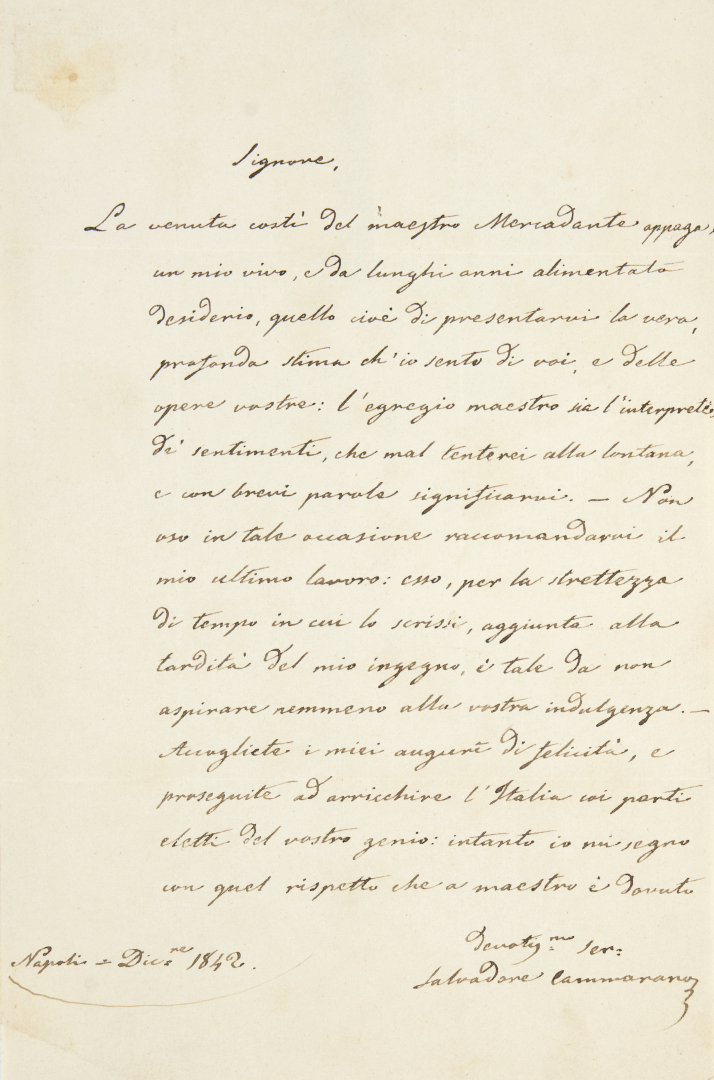 Signore,
La venuta costì del maestro Mercadante appaga,
un mio vivo, e da lunghi anni alimentato
desiderio, quello cioè di presentarvi la vera,
profonda stima ch'io sento di voi, e delle
opere vostre: l'egregio maestro sia l'interprete,
de' sentimenti, che mal tenterei alla lontana,
e con brevi parole significarvi. — Non
oso in tale occasione raccomandarvi il
mio ultimo lavoro: esso, per la strettezza
di tempo in cui lo scrissi, aggiunta alla
tardità del mio ingegno, è tale da non
aspirare nemmeno alla vostra indulgenza. —
Accogliete i miei augurî di felicità, e
proseguite ad arricchire l'Italia coi parti
eletti del vostro genio: intanto io mi segno
con quel rispetto che a maestro è dovuto
Devotis.mo Ser:
Napoli = Dic.re 1842.
Salvadore Cammarano